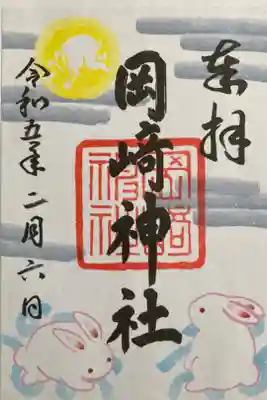 奉拝
岡崎神社
岡崎神社
令和五年二月六日